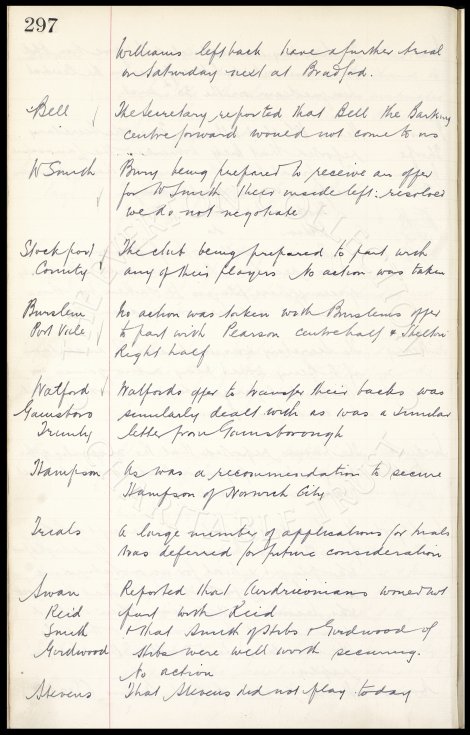 297
Williams left back have a further trial
on Saturday next at Bradford.
Bell The Secretary reported that Bell the Barking
centre forward would not come to us
W Smith Bury being prepared to receive an offer
for W Smith their inside left: resolved
we do not negotiate
Stockport The club being prepared to part with
County any of their players No action was taken
Burslem No action was taken with Burslems offer
Port Vale to part with Pearson centre half &
Right half
Watford Watfords offer to transfer their backs was
Gainsboro similarly dealt with as was a similar
Trinity letter from Gainsborough
Hampson As was a recommendation to secure
Hampson of Norwich City
Trials A large number of applications for trials
was deferred for future consideration
Swan Reported that Airdrieonians would not
Reid part with Reid
Smith & that Smith of Hibs & Girdwood of
Girdwood Hibs were well worth securing.
No action
Stevens That Stevens did not play today